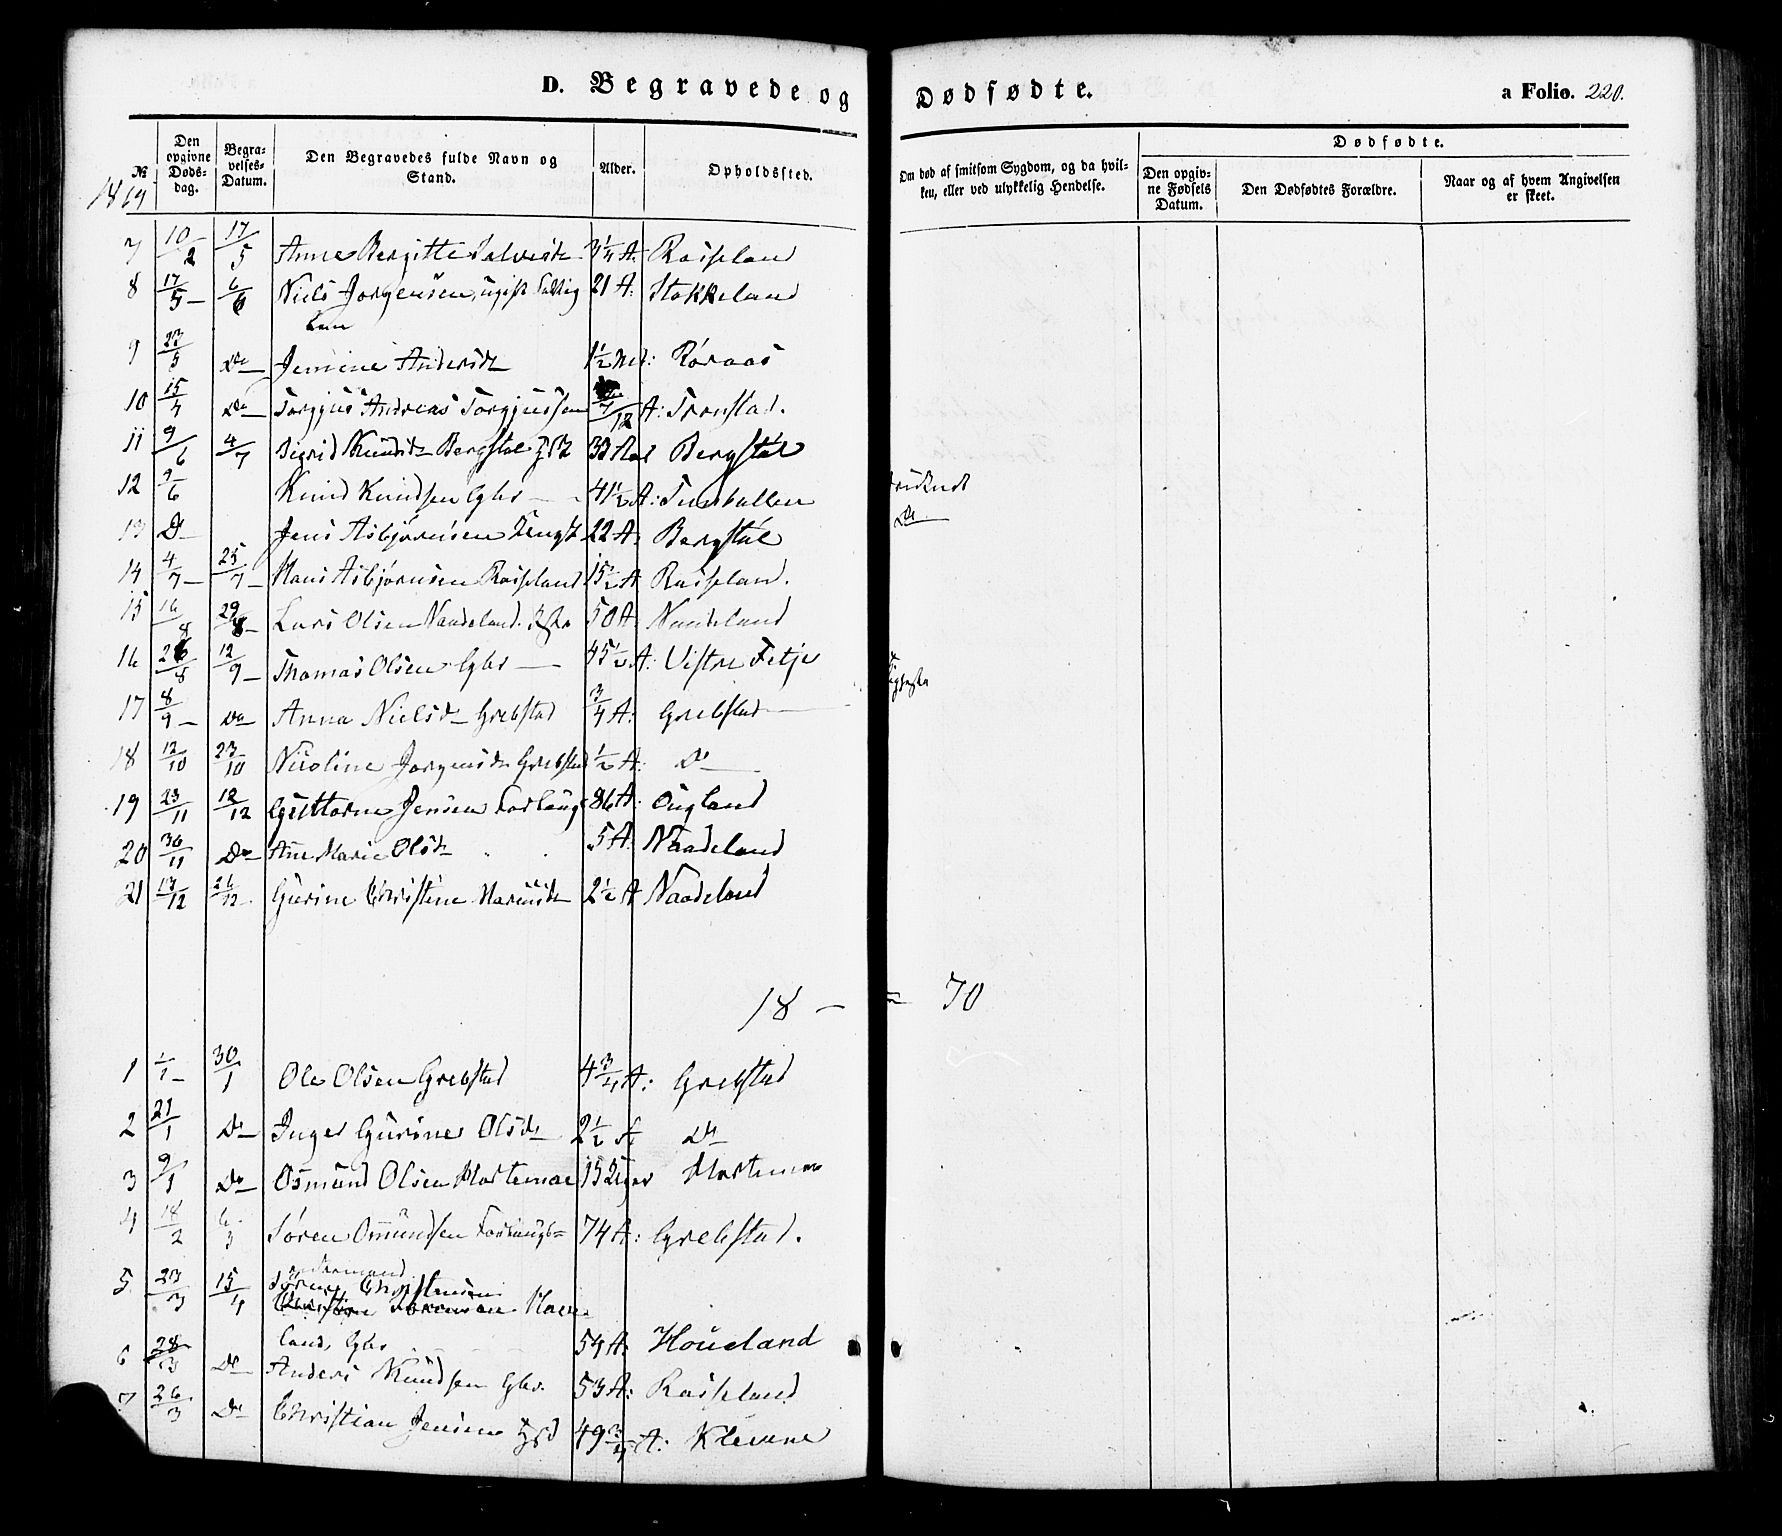 D. Begravede og Dødfødte. a Folio. 220.
No
Den opgivne Døds-dag.
Begra-velses-Datum.
Den Begravedes fulde Navn og Stand.
Alder.
Opholdssted.
Om død af smitsom Sygdom, og da hvil-ken, eller ved ulykkelig Hendelse.
Dødfødte.
Den opgiv-ne Fødsels Datum.
Den Dødfødtes Forældre.
Naar og af hvem Angivelsen er skeet.
1869
7 10/2 17/5 Anne Bergitte 3 1/4 A. Roiseland
8 17/5 6/6 Niels Jorgensen, ugift 21 A: Stokkeland
9 23/5 Do Jemine Andersdr 1 1/2 Røraas
10 15/4 Do Torgjus Andreas Torgjussen 7/12 A: Tronstad.
11 9/6 4/7 Sigrid Knudsdr Bergstøl 33 Aar Bergstøl
12 9/6 Knud Knudsen Gbr 41 1/2 A:
13 Do Jens Asbjørnsen 22 A: Bergstøl
Do
14 4/7 25/7 Hans Asbjørnsen Roiseland 15 1/2 A Roiseland.
15 16/8 29/8 Lars Olsen Naadeland. 50 A: Naadeland
16 26/8 12/9 Thomas Olsen Gbr 45 1/2 A: Vestre Fetje
17 8/9 Do Anna Nielsdr Grebstad 3/4 A: Grebstad
18 12/10 23/10 Nicoline Jorgensdr Grebstad 1/2 A: Do
19 23/11 12/12 Guttorm Jensen 86 A: Ougland
20 30/11 Do Ane Marie Olsdr 5 A: Naadeland
21 13/12 26/12 Gurine Christine 2 1/2 A Naadeland
18 — = 70
1 1/1 30/1 Ole Olsen Grebstad 4 3/4 A: Grebstad
2 21/1 Do Inger Gurine Olsdr 2 1/2 A Do
3 9/1 Do Osmund Olsen 15 Uger
4 18/2 6/3 Søren Omundsen 74 A: Grebstad.
5 23/3 15/4 Søren Christensen
land, Gbr 54 A: Houeland
6 28/3 Do Anders Knudsen Gbr. 53 A: Roiseland
7 26/3 Do Christian Jensen 49 3/4 A: Klevene